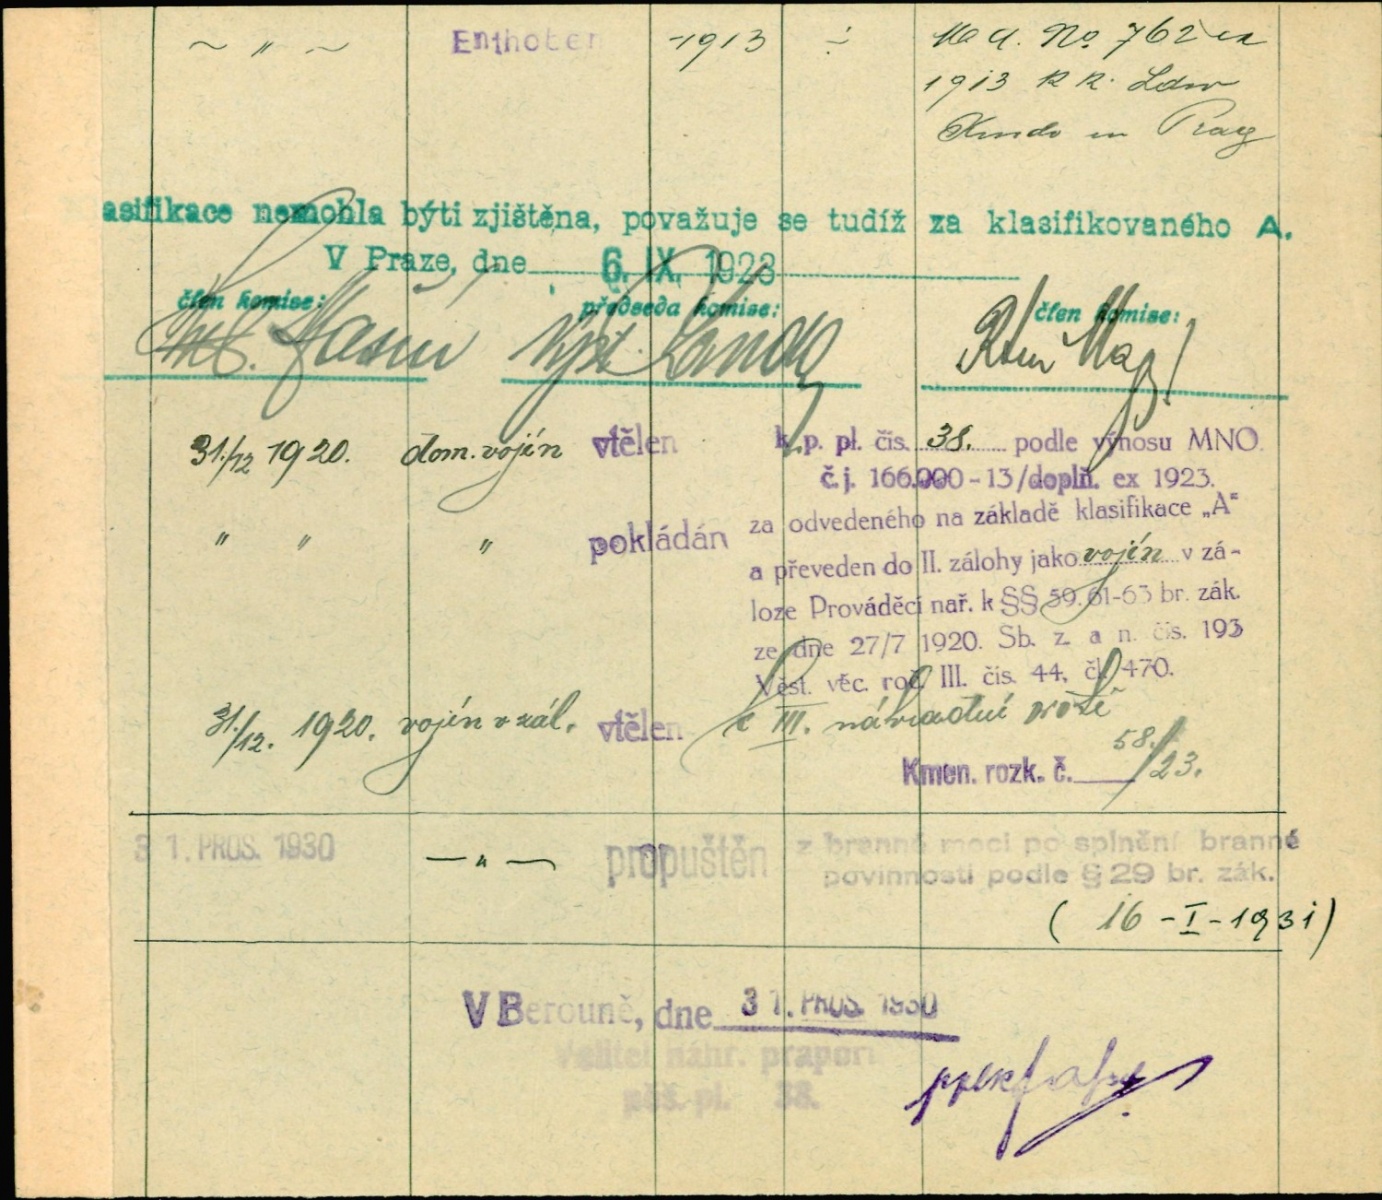 ~ " ~ Enthoben -1913 ÷ M A. No 762 ex
1913 K K. Ldw
Kmdo in Prag
asifikace nemohla býti zjištěna, považuje se tudíž za klasifikovaného A.
V Praze, dne 6. IX. 1923
člen komise: předseda komise: člen komise:
31./12 1920. dom. vojín vtělen k. p. pl. čís. 38. podle výnosu MNO.
č. j. 166.000-13/doplň. ex 1923.
" " " pokládán za odvedeného na základě klasifikace „A"
a převeden do II. zálohy jako vojín v zá-
loze Prováděcí nař. k §§ 59. 61-63 br. zák.
ze dne 27/7 1920. Sb. z. a n. čís. 193
Věst. věc. roč. III. čís. 44, čl. 470.
31./12. 1920. vojín v zál. vtělen k III. náhradní rotě
Kmen. rozk. č. 58./23.
31. PROS. 1930 — " — propuštěn z branné moci po splnění branné
povinnosti podle § 29 br. zák.
( 16 - I - 1931 )
V Berouně, dne 31. PROS. 1930
Velitel náhr. praporu
pěš. pl. 38.